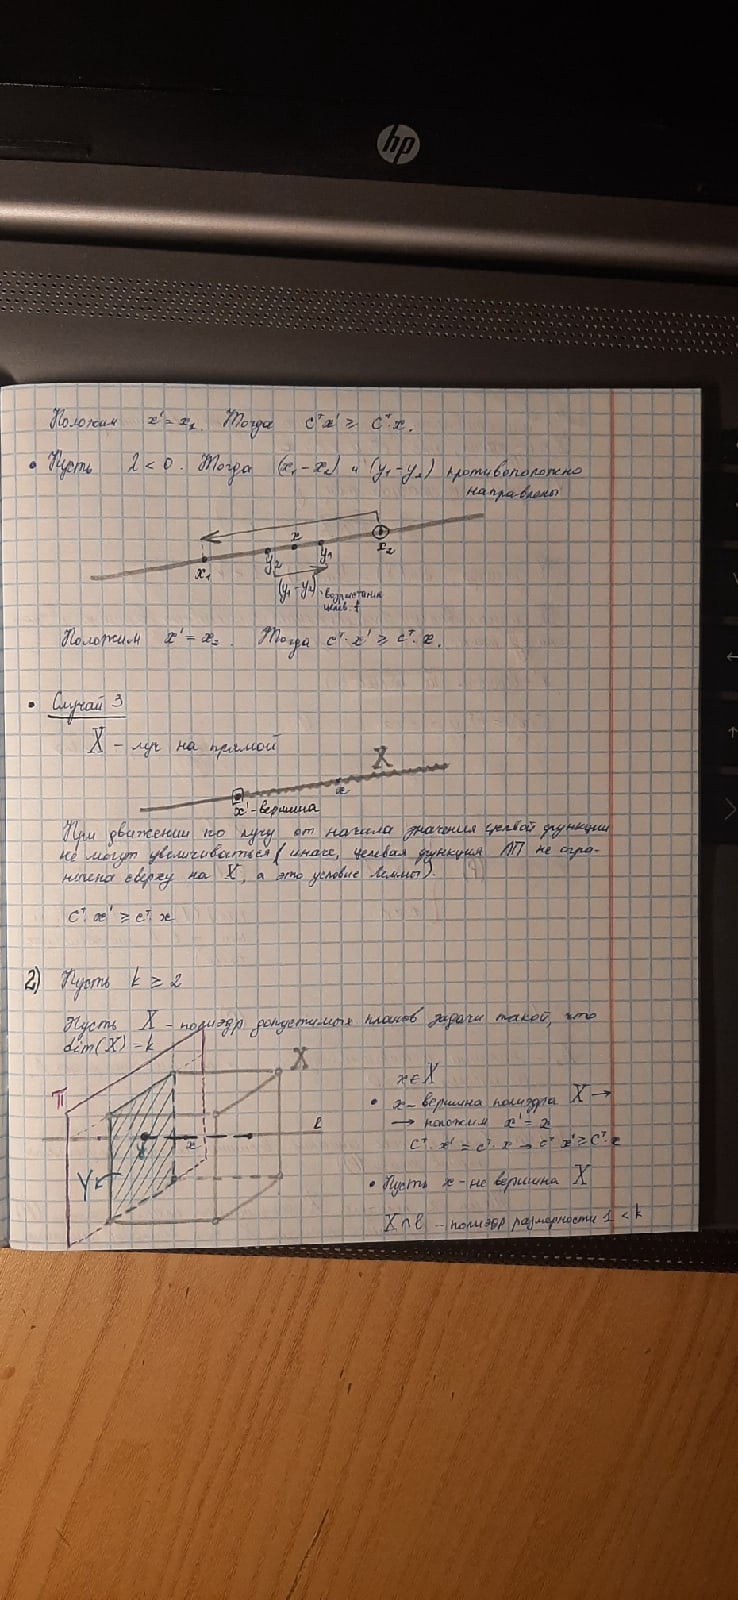 hp
Положим x' = x₁. Тогда cᵀx' ≥ cᵀ·x.
• Пусть λ < 0. Тогда (x₁-x₂) и (y₁-y₂) противоположно
направлены
x₁ y₂ x y₁ x₂
(y₁-y₂) возрастание
целев. f
Положим x' = x₂. Тогда cᵀ·x' ≥ cᵀ·x.
• Случай 3
X - луч на прямой
X
x
x'-вершина
При движении по лучу от начала значения целевой функции
не могут увеличиваться (иначе, целевая функция ЛП не огра-
ничена сверху на X, а это условие леммы).
cᵀ·x' ≥ cᵀ·x
2) Пусть k ≥ 2
Пусть X - полиэдр допустимых планов задачи такой, что
dim(X) = k
X
π
x ∈ X
• x - вершина полиэдра X →
→ положим x' = x
cᵀ·x' = cᵀ·x → cᵀx' ≥ cᵀ·x
ℓ
x
y
Y
• Пусть x - не вершина X
X ∩ ℓ - полиэдр размерности 1 < k